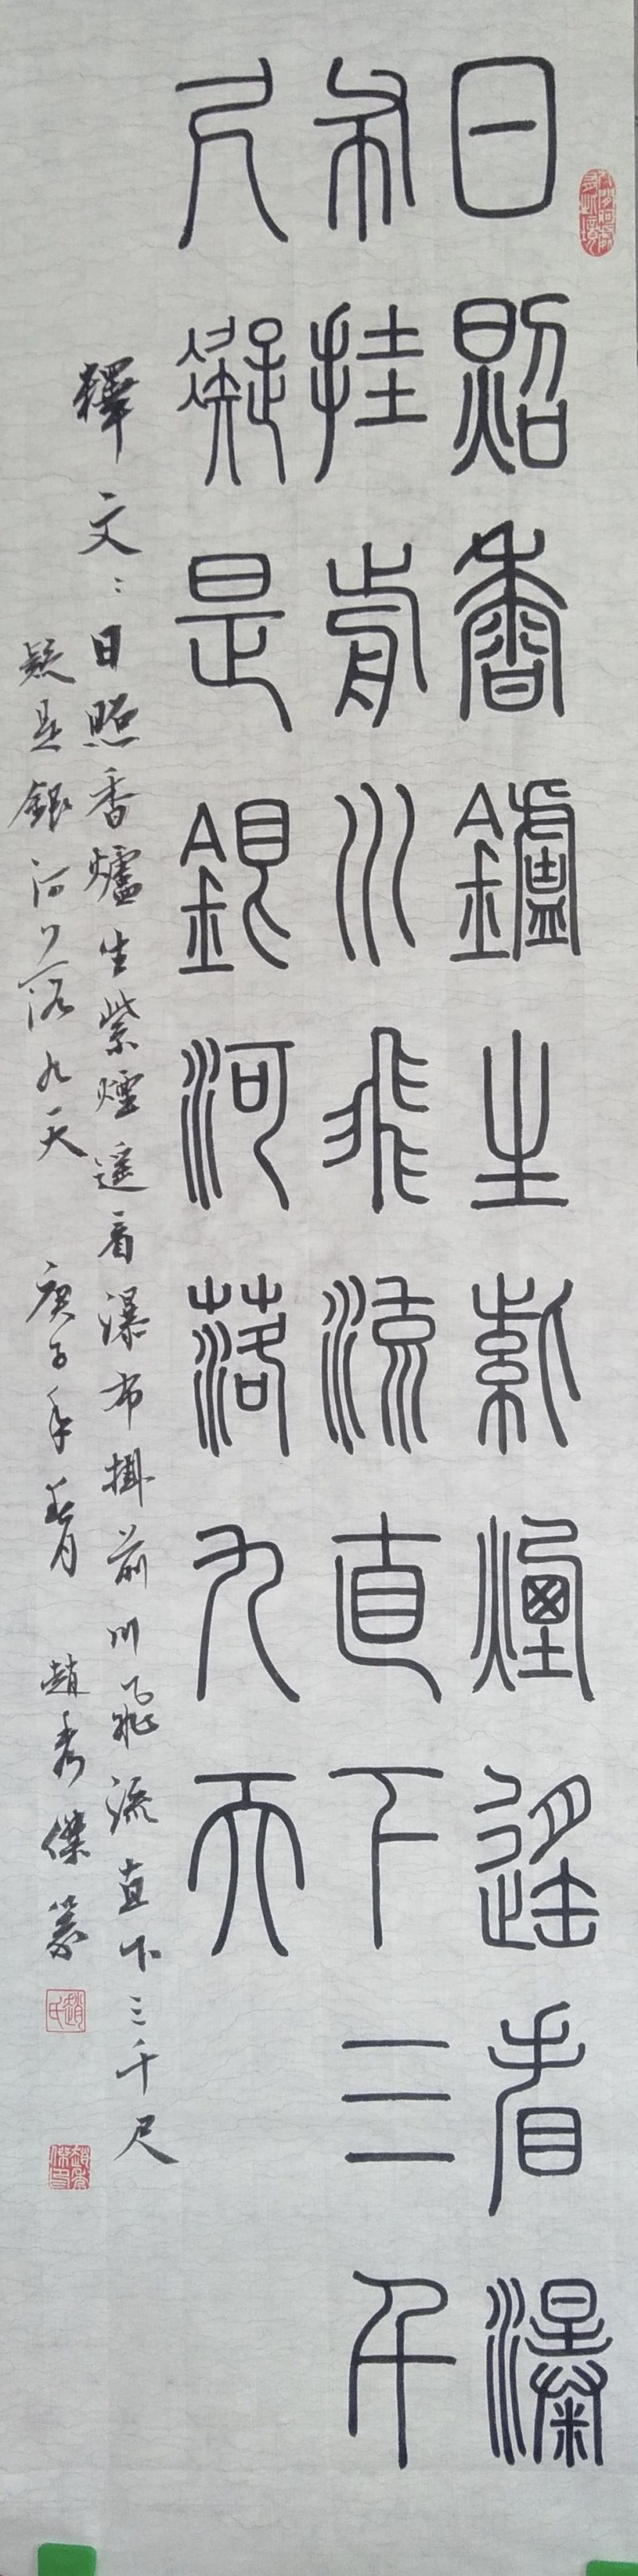 日照香鑪生紫煙遥看瀑
布挂前川飛流直下三千
尺凝是銀河落九天
釋文：日照香爐生紫煙遥看瀑布掛前川飛流直下三千尺
疑是銀河落九天 庚子年春月 趙秀傑篆
趙氏